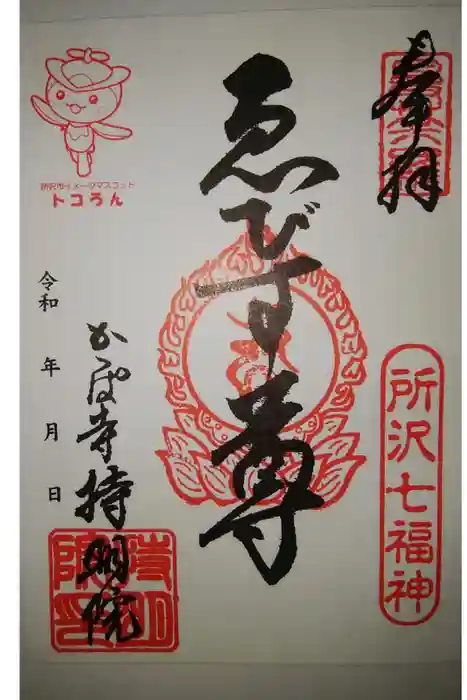 奉拝
所沢七福神
ゑびす尊
所沢市イメージマスコット
トコろん
令和 年 月 日
かっぱ寺持明院